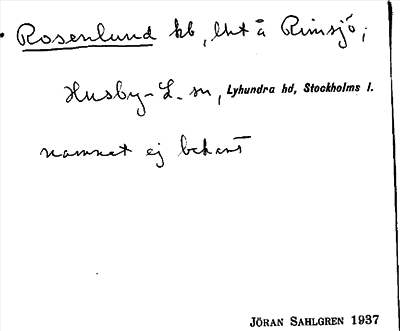 Rosenlund kb, lht å Rimsjö;
Husby-L. sn, Lyhundra hd, Stockholms l.
namnet ej bekant
JÖRAN SAHLGREN 1937